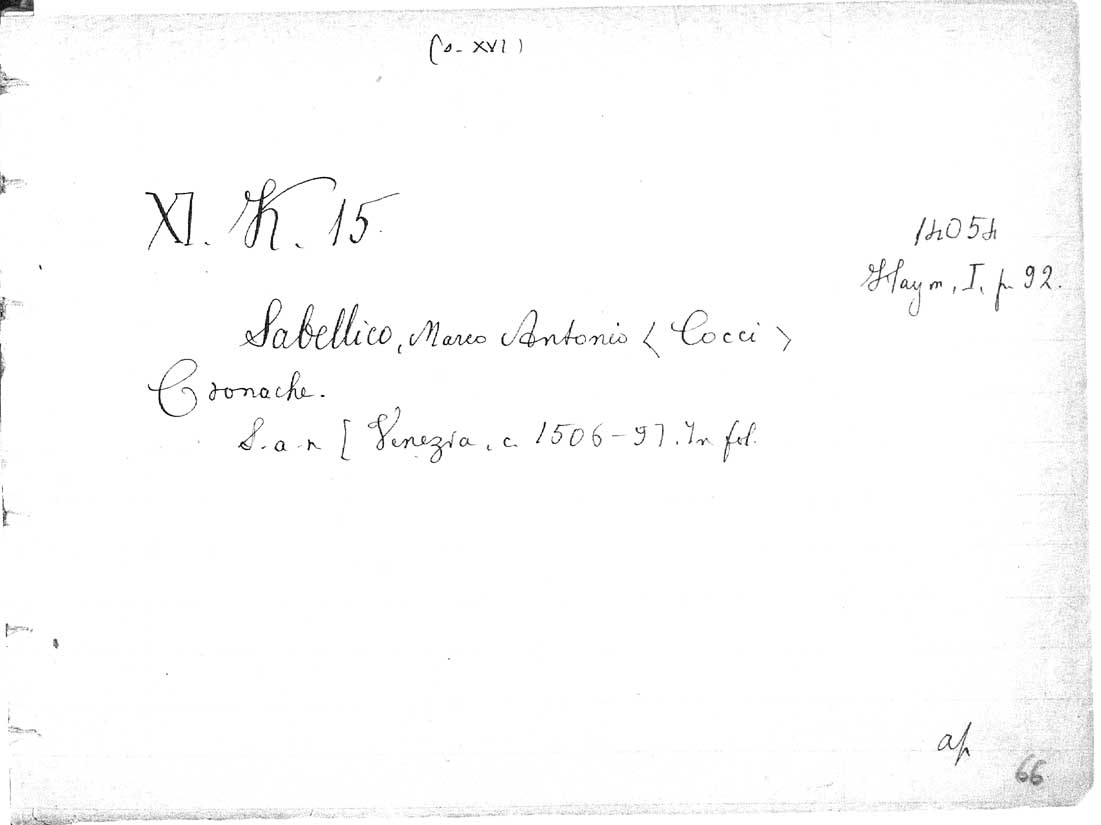 (s. XVI)
XI. K. 15.
14054
Haym, I, p. 92.
Sabellico, Marco Antonio < Cocci >
Cronache.
S. a. n [ Venezia, c. 1506-97. In fol.
ap
66